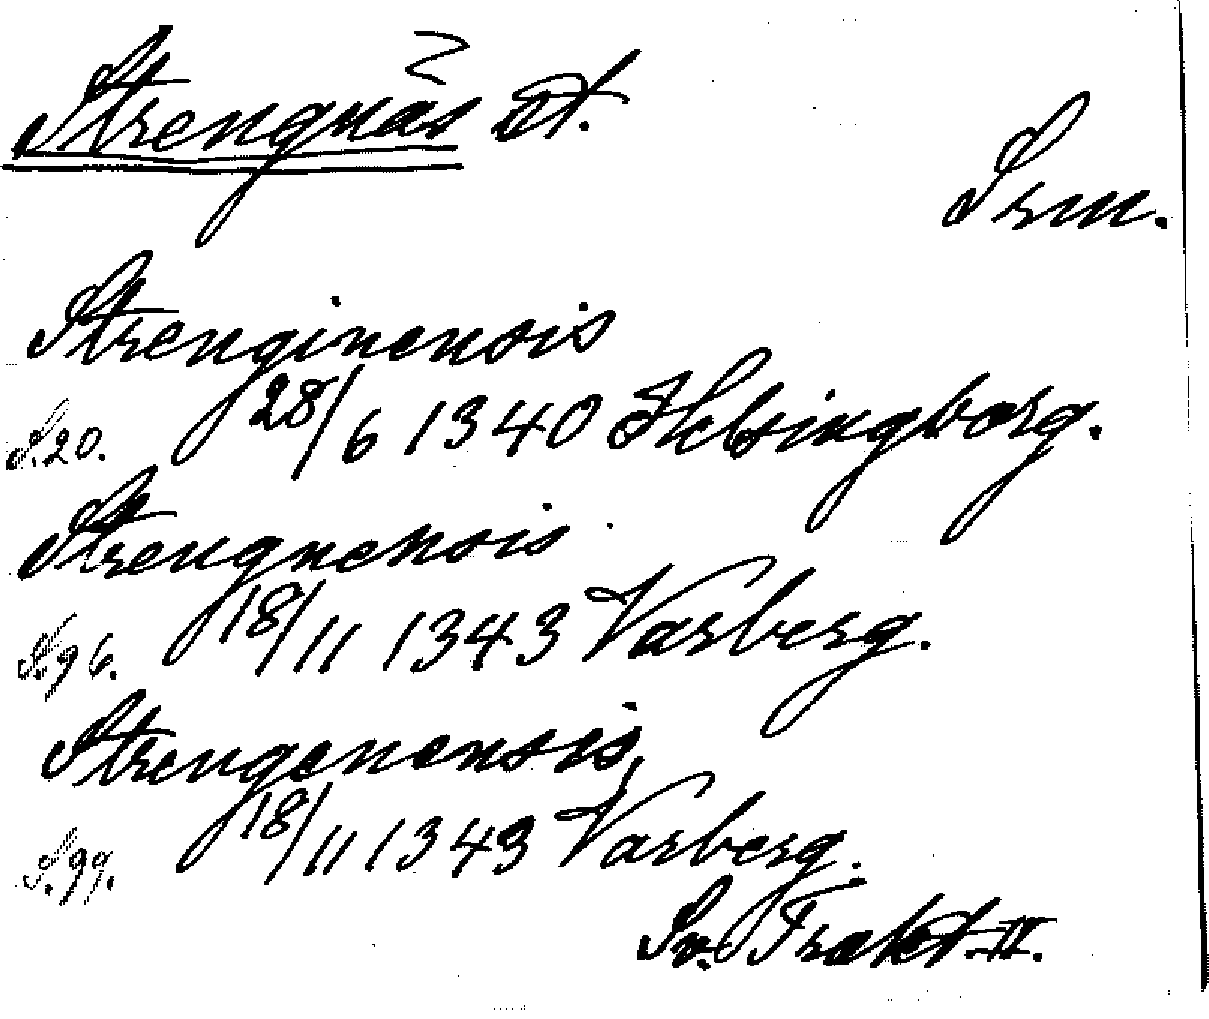 Strengnäs st.
Srm.
Strenginensis
S.20. 28/6 1340 Helsingborg.
Strengnensis
S.96. 18/11 1343 Varberg.
Strengenensis,
S.99. 18/11 1343 Varberg.
Sv. Trakt. II.